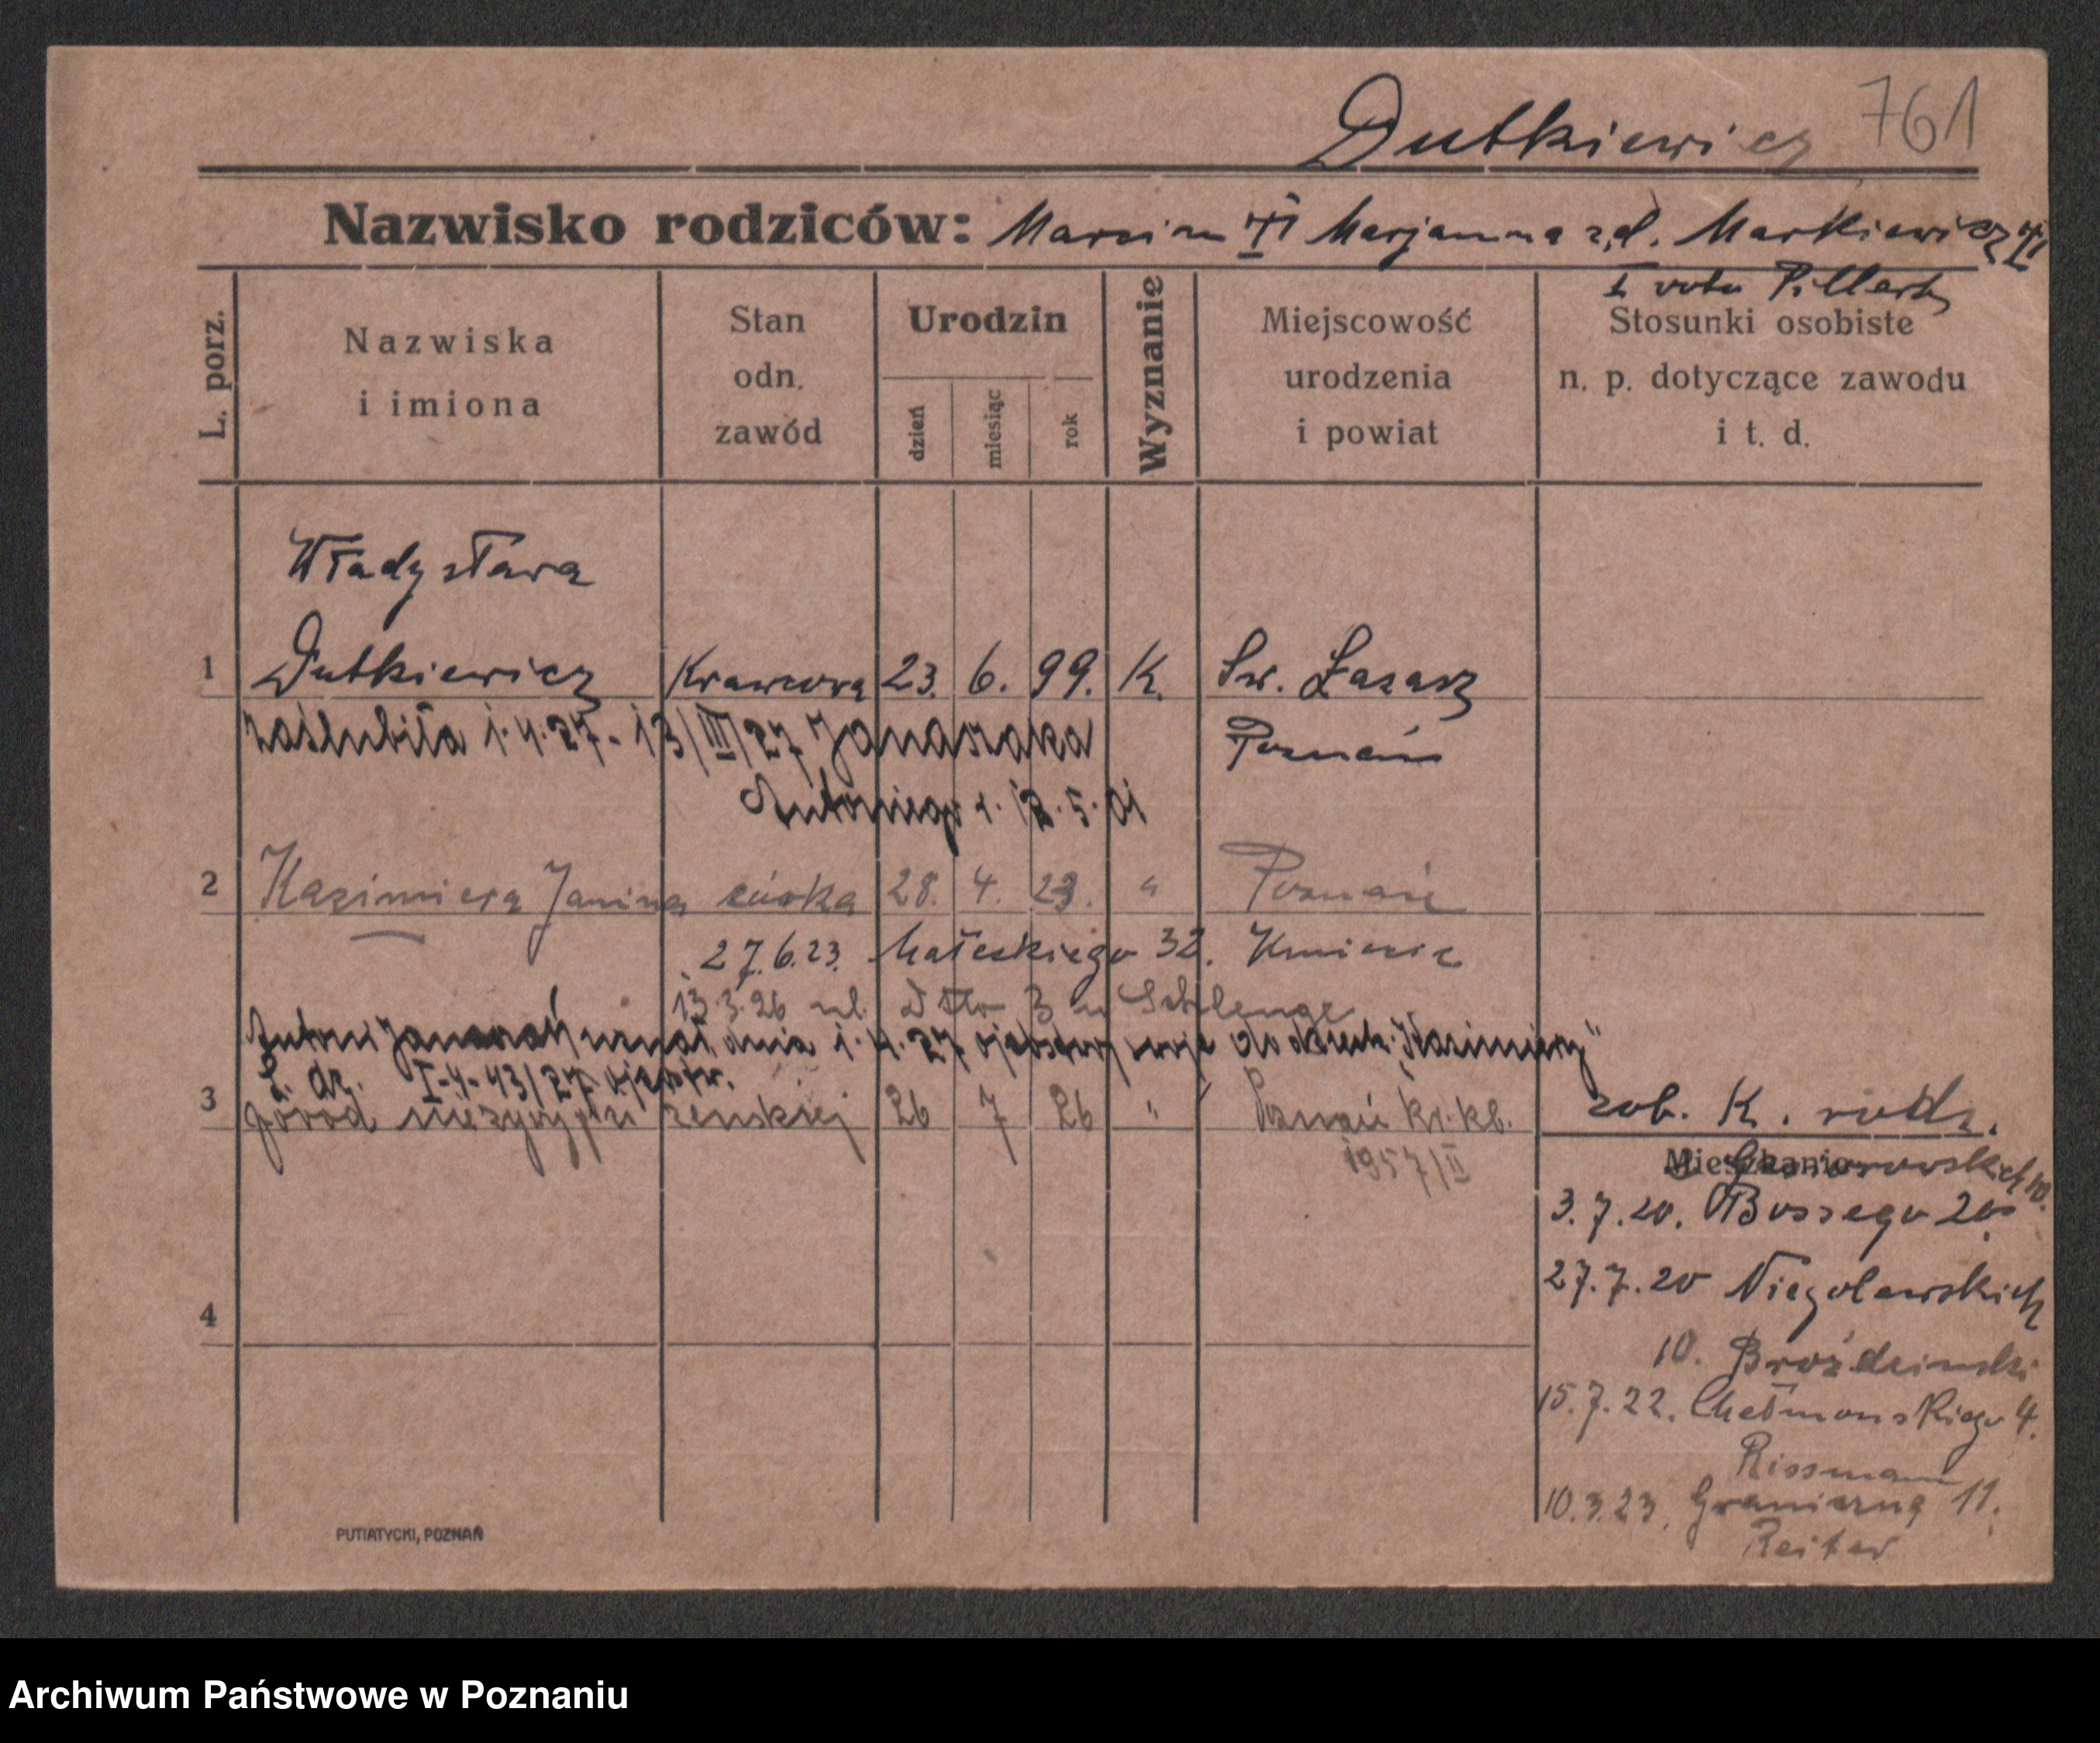 Dutkiewicz 761
Nazwisko rodziców: Marcin Marjanna zd. Markiewicz
I voto Pillert
L. porz.
Nazwiska
i imiona
Stan
odn.
zawód
Urodzin
dzień
miesiąc
rok
Wyznanie
Miejscowość
urodzenia
i powiat
Stosunki osobiste
n. p. dotyczące zawodu
i t. d.
Władysława
1 Dutkiewicz Krawcowa 23. 6. 99. K. Św. Łazarz
zaślubiła 1.4.27 - 13/III/27 Janaszaka Poznań
Antoniego r. 12.5.01
2 Kazimiera Janina córka 28. 4. 23. " Poznań
27.6.23. Małeckiego 32. Kmiecic
13.3.26
Antoni Janaszak uznał dnia 1.4.27 ojcostwo swoje do dziecka "Kazimiery"
L. dz. I-4-43/27
3 poród nieżywy płci żeńskiej 26 7 26 " Poznań
1957/II
zob. K. rodz.
Mieszkanie
3.7.20. Bossego 20
27.7.20 Niegolewskich
10. Broździnski
15.7.22. Chełmonskiego 4.
Rissmann
10.3.23. Graniczna 11.
Reiter
4
PUTIATYCKI, POZNAŃ
Archiwum Państwowe w Poznaniu